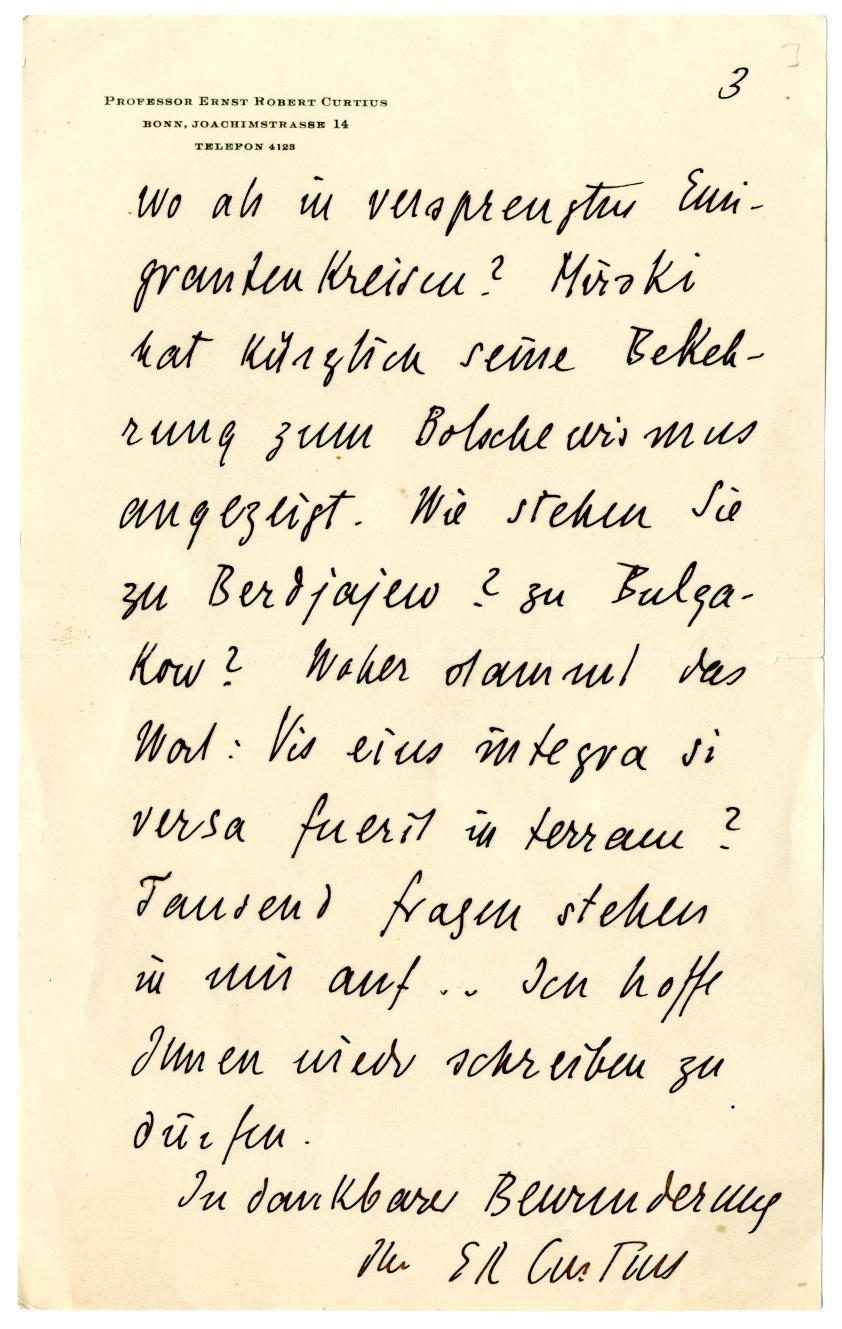 3
PROFESSOR ERNST ROBERT CURTIUS
BONN, JOACHIMSTRASSE 14
TELEFON 4123
wo als in versprengten Emi-
grantenkreisen? Mirski
hat kürzlich seine Bekeh-
rung zum Bolschewismus
angezeigt. Wie stehen Sie
zu Berdjajew? zu Bulga-
kow? Woher stammt das
Wort: Vis eius integra si
versa fuerit in terram?
Tausend Fragen stehen
in mir auf.. Ich hoffe
Ihnen wieder schreiben zu
dürfen.
In dankbarer Bewunderung
Ihr ER Curtius